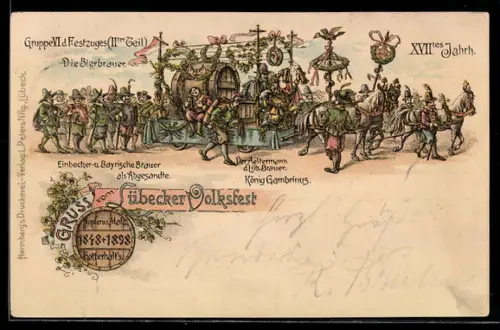 Gruppe VI d. Festzuges (IIter Teil)
Die Bierbrauer.
XVIItes Jahrh.
Einbecker- u. Bayrische Brauer
als Abgesandte.
Der Aeltermann
d. Lüb. Brauer.
König Gambrinus.
GRUSS vom Lübecker Volksfest
Hopfen u. Malz
1848 + 1898
Gott erhalt's!
Hermberg's Druckerei-Verlag i. Peters Nflg. Lübeck.